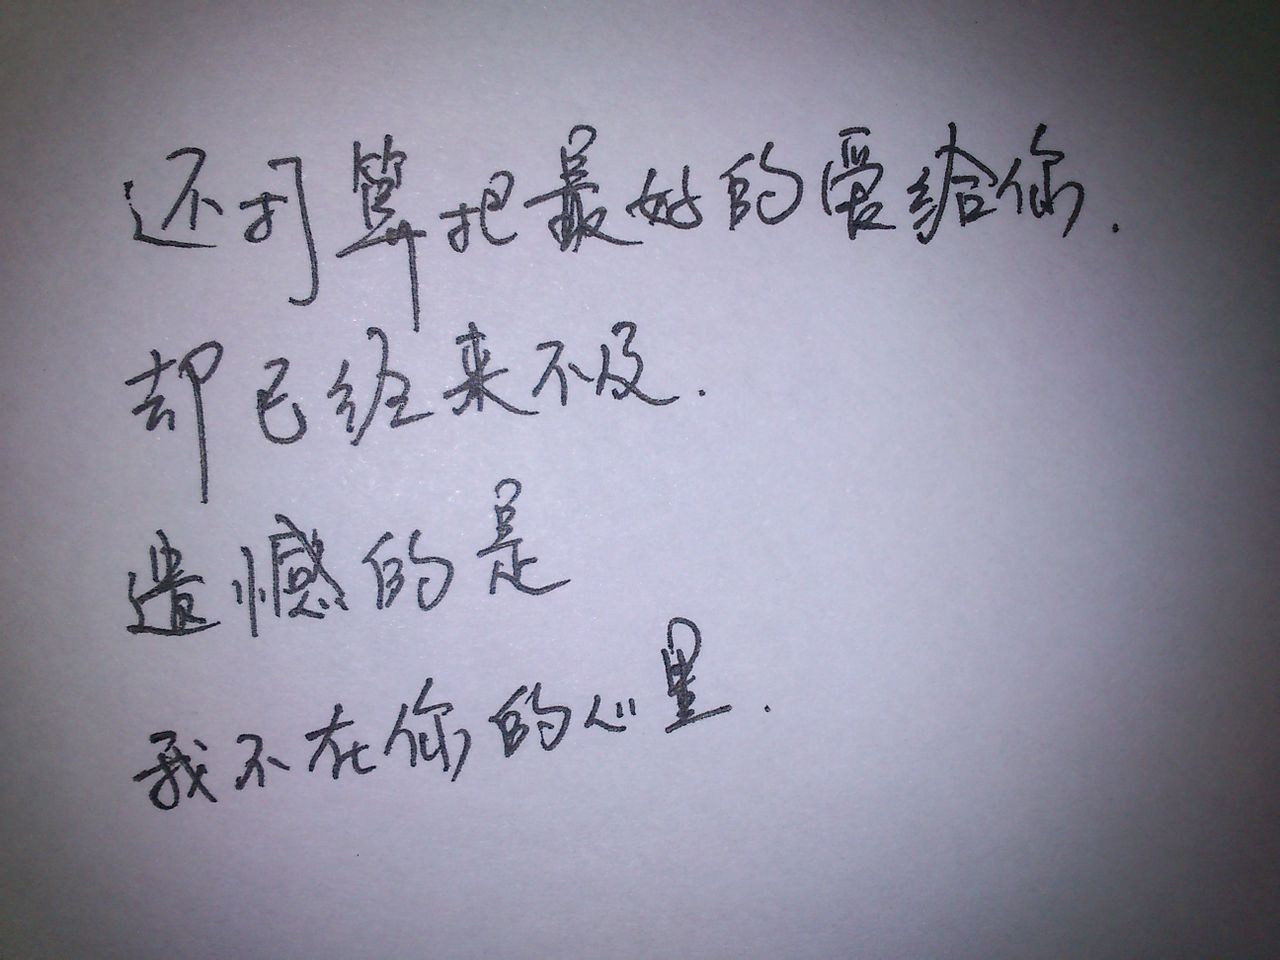 还打算把最好的爱给你.
却已经来不及.
遗憾的是
我不在你的心里.